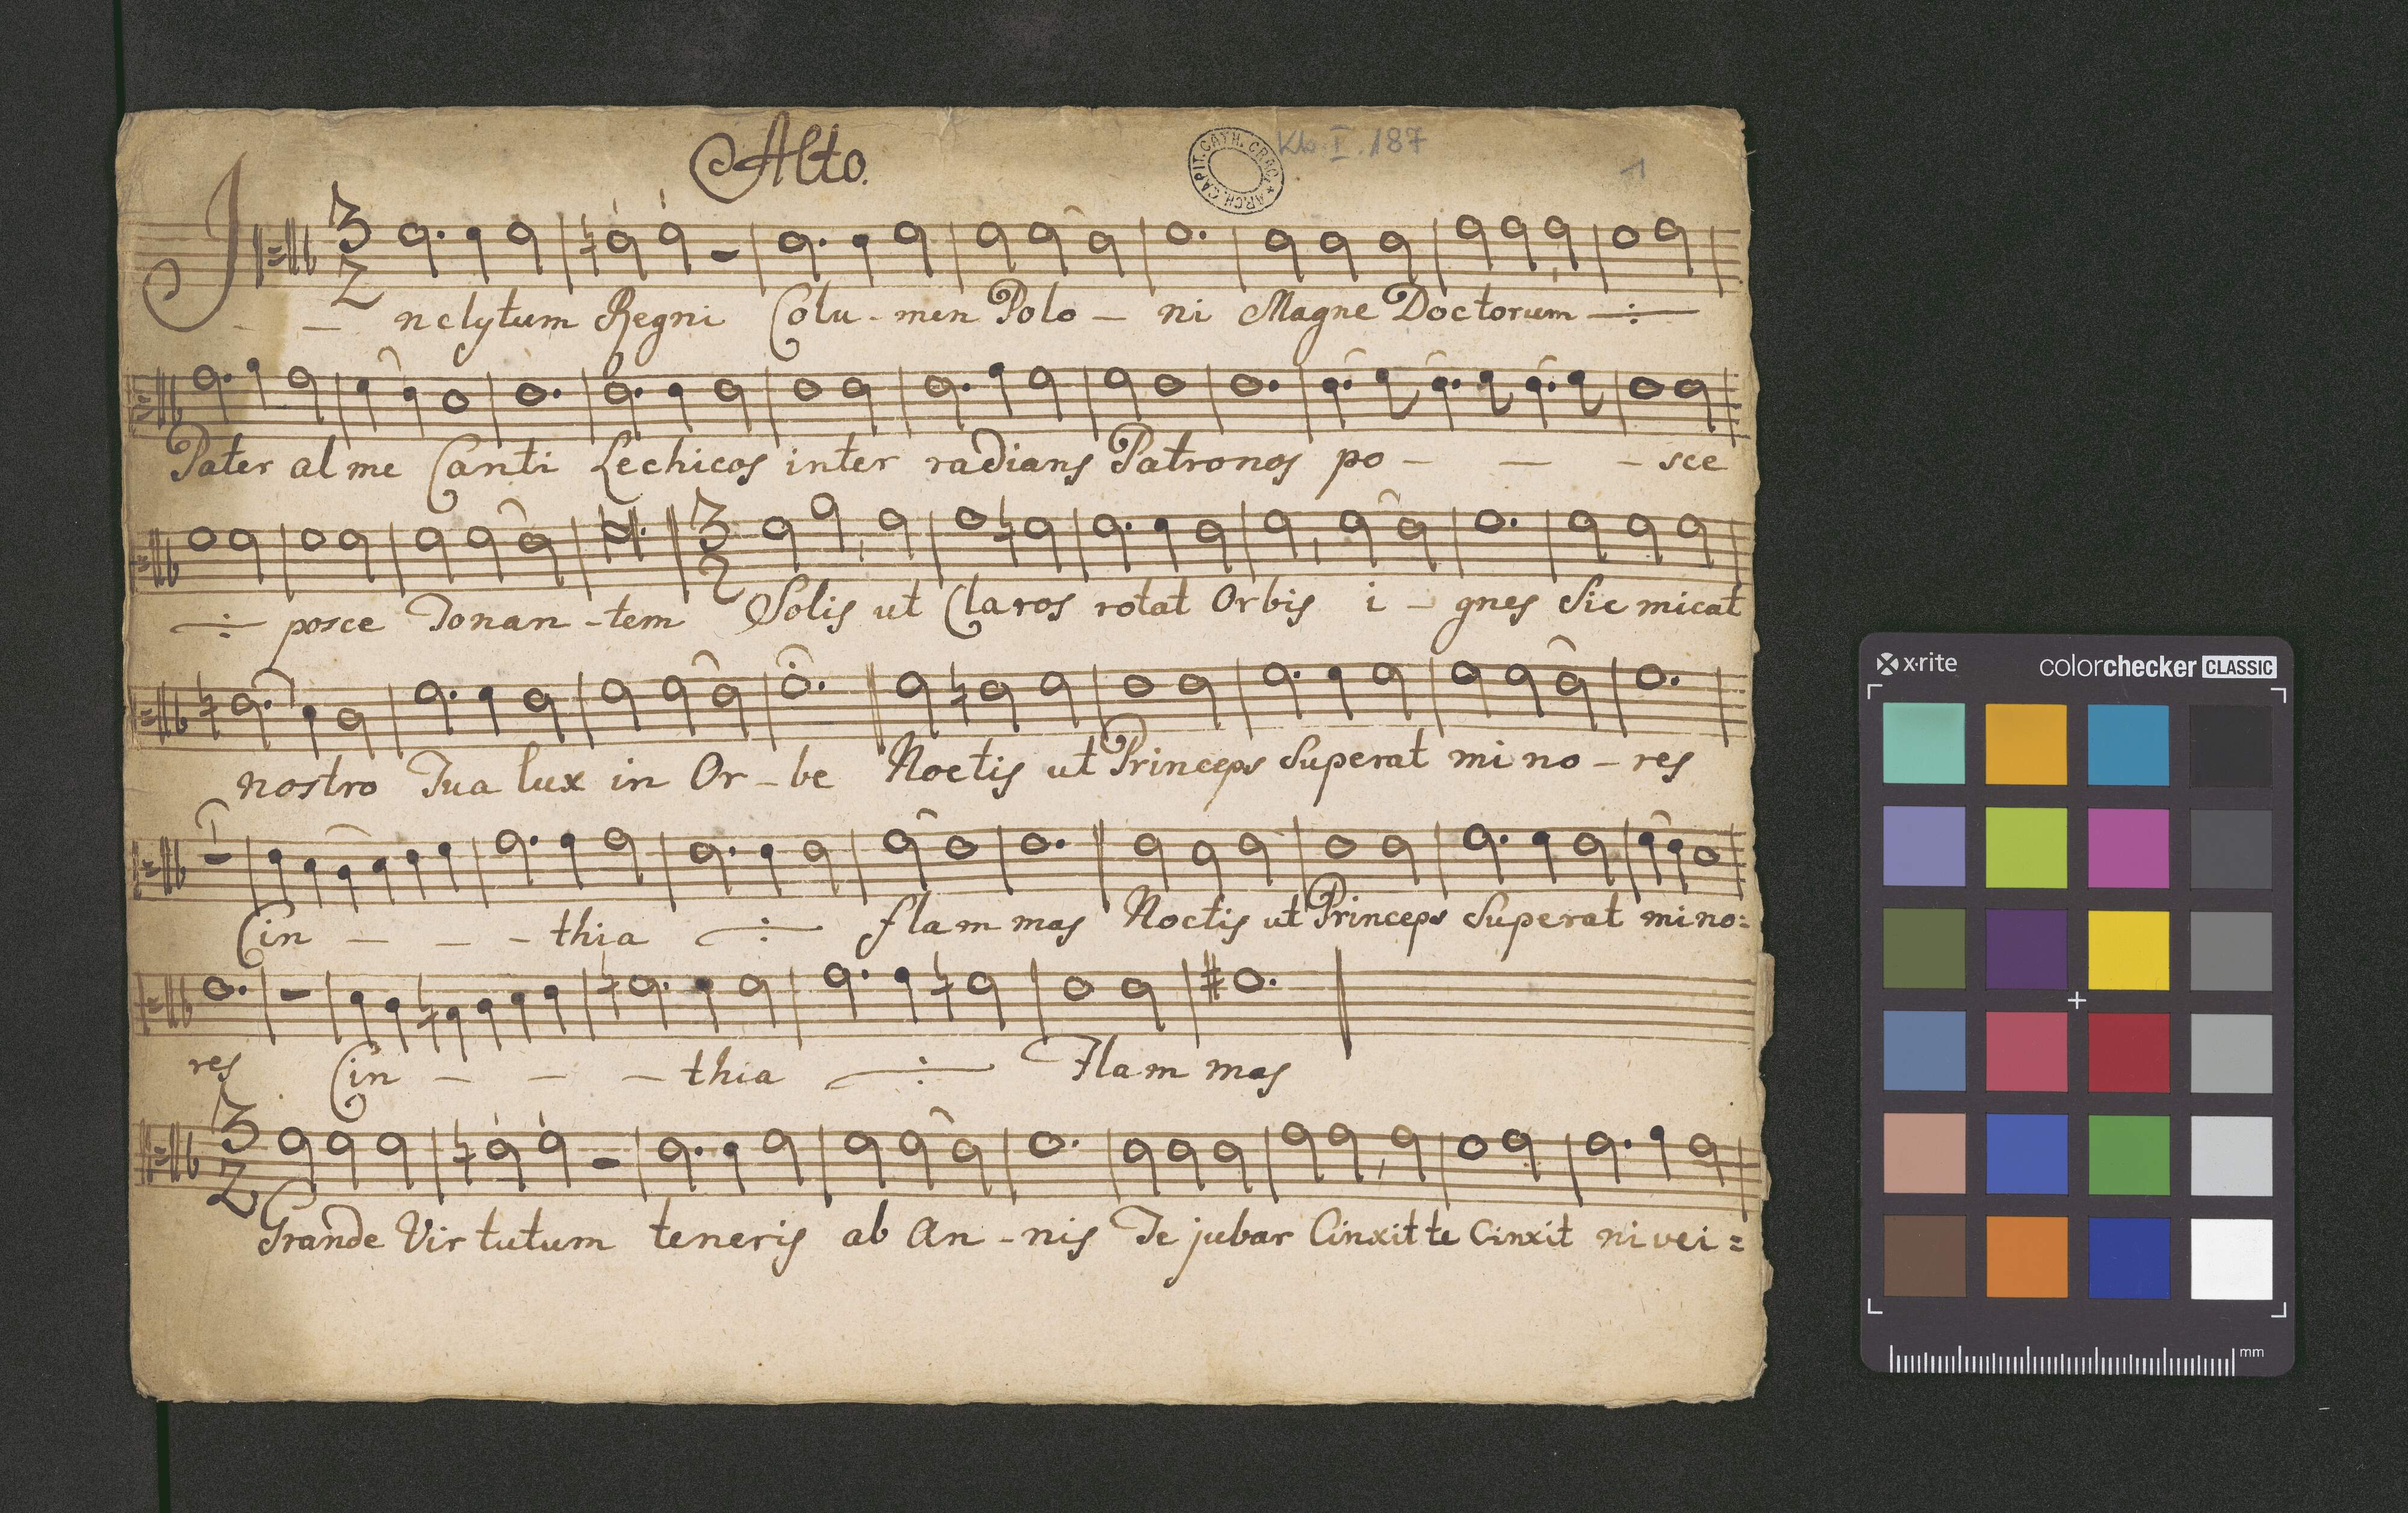 Alto.
ARCH. CAPIT. CATH. CRAC.
Kk I. 187
1
3 2
Inclytum Regni Colu - men Polo - ni Magne Doctorum ÷
Pater alme Canti Lechicos inter radians Patronos po - - - sce
3 2
÷ posce Tonan - tem Solis ut Claros rotat Orbis i - gnes Sic micat
nostro Tua lux in Or - be Noctis ut Princeps Superat mi no - res
Cin - - - thia ÷ flam mas Noctis ut Princeps Superat mino:
res Cin - - - thia ÷ Flam mas
3 2
Grande Virtutum teneris ab An - nis Te jubar Cinxit te Cinxit nivei =
x·rite colorchecker CLASSIC
mm